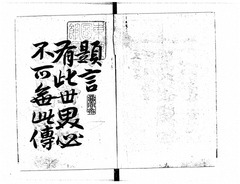 題言
有此世界必
不可無此傳